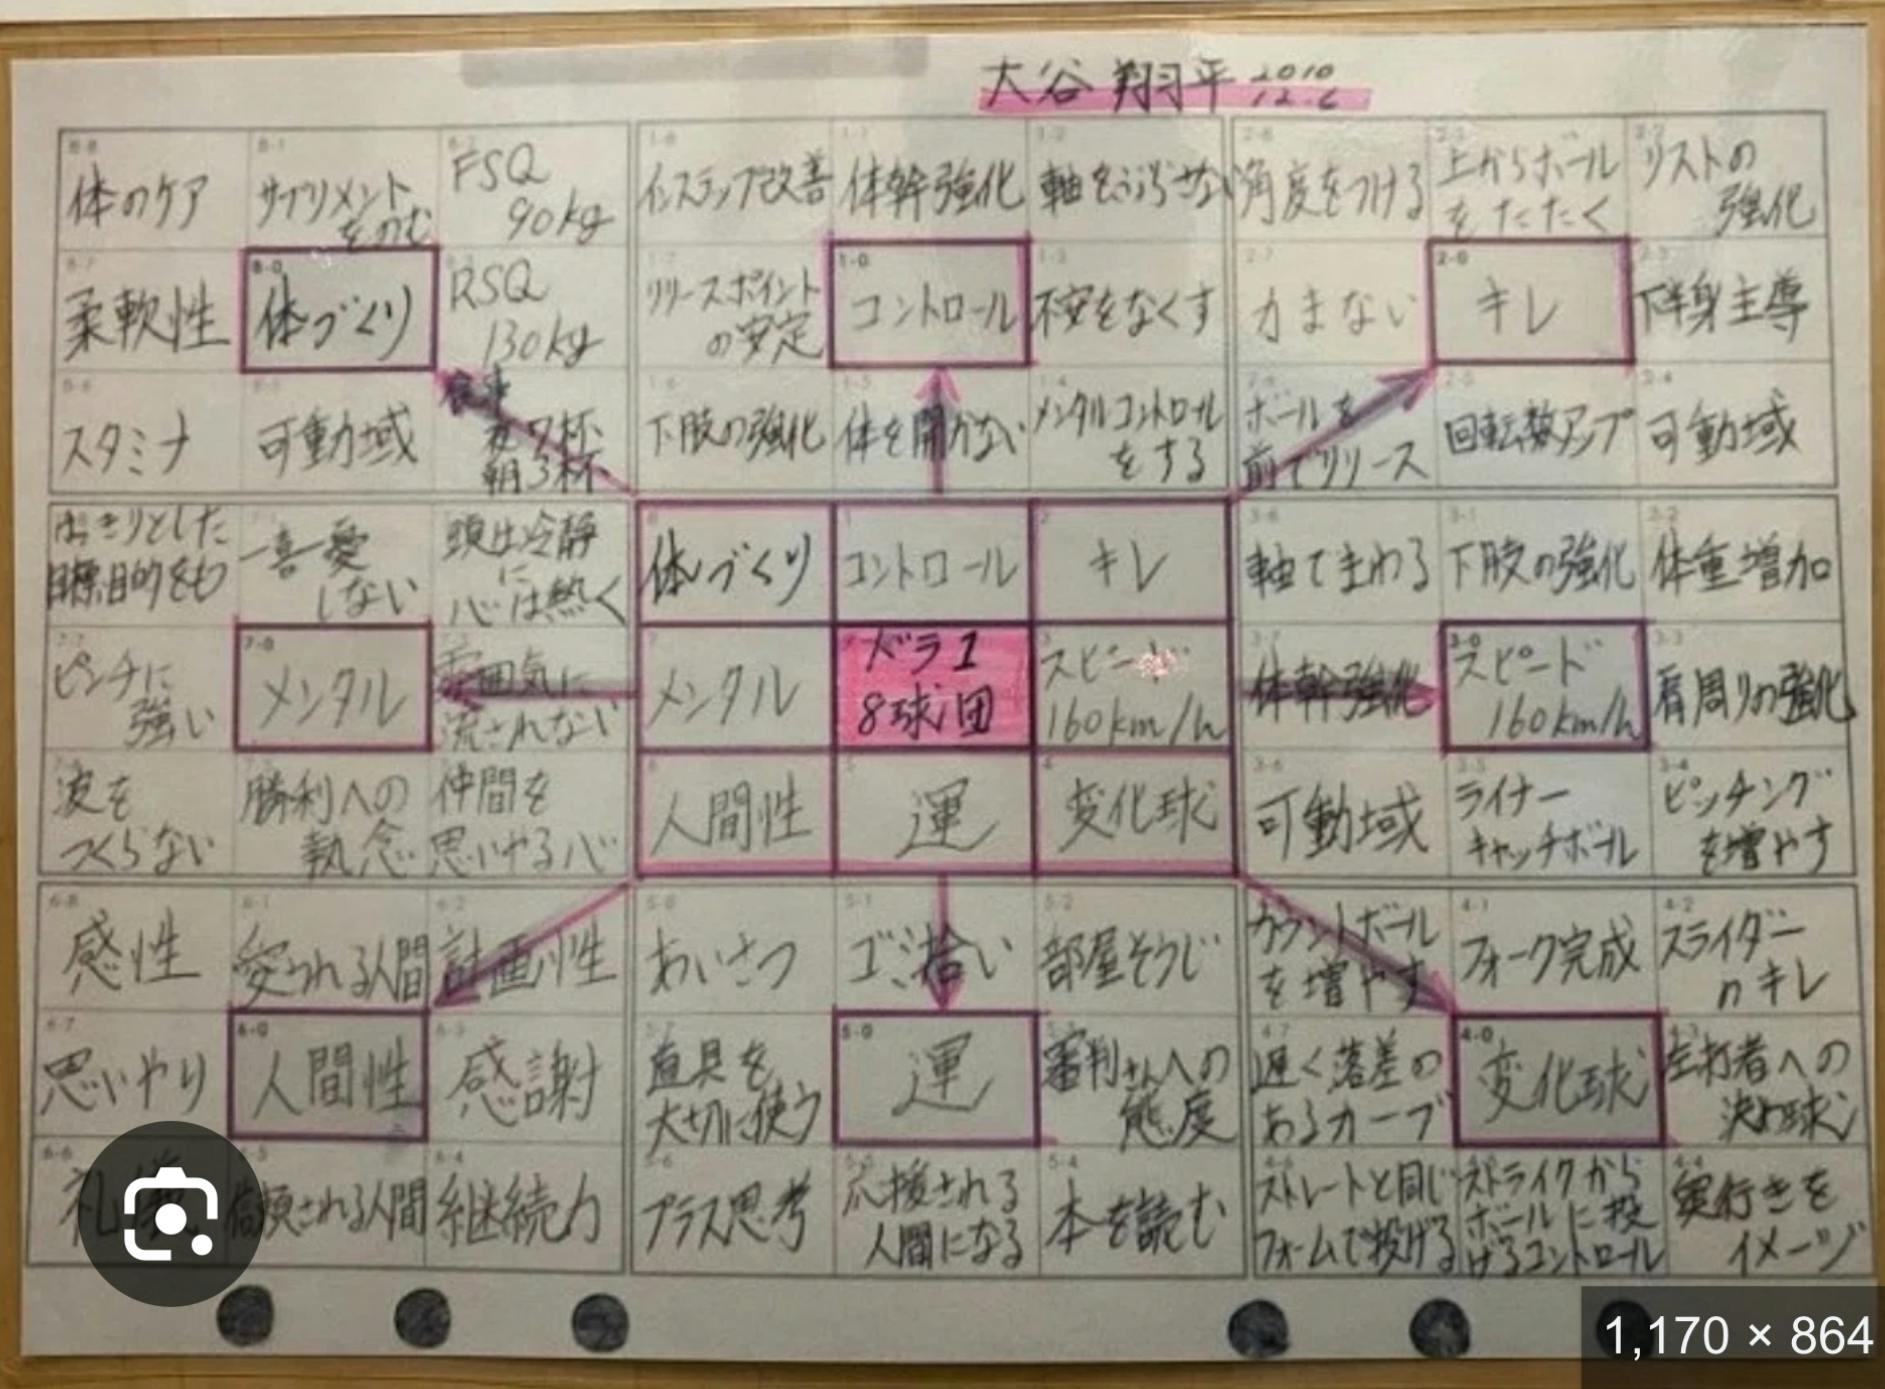 大谷 翔平 2010
12.6
体のケア
サプリメント
をのむ
FSQ
90kg
インステップ改善
体幹強化
軸をぶらさない
角度をつける
上からボール
をたたく
リストの
強化
柔軟性
体づくり
RSQ
130kg
リリースポイント
の安定
コントロール
不安をなくす
力まない
キレ
下半身主導
スタミナ
可動域
食事
夜7杯
朝3杯
下肢の強化
体を開かない
メンタルコントロール
をする
ボールを
前でリリース
回転数アップ
可動域
はっきりとした
目標目的をもつ
一喜一憂
しない
頭は冷静
に
心は熱く
体づくり
コントロール
キレ
軸でまわる
下肢の強化
体重増加
ピンチに
強い
メンタル
雰囲気に
流されない
メンタル
ドラ1
8球団
スピード
160km/h
体幹強化
スピード
160km/h
肩周りの強化
波を
つくらない
勝利への
執念
仲間を
思いやる心
人間性
運
変化球
可動域
ライナー
キャッチボール
ピッチング
を増やす
感性
愛される人間
計画性
あいさつ
ゴミ拾い
部屋そうじ
カウントボール
を増やす
フォーク完成
スライダー
のキレ
思いやり
人間性
感謝
道具を
大切に使う
運
審判さんへの
態度
遅く落差の
あるカーブ
変化球
左打者への
決め球
礼
信頼される人間
継続力
プラス思考
応援される
人間になる
本を読む
ストレートと同じ
フォームで投げる
ストライクから
ボールに投
げるコントロール
奥行きを
イメージ
1,170 × 864